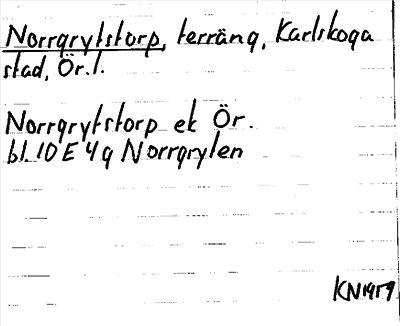 Norrgrytstorp, terräng, Karlskoga
stad, Ör.l.
Norrgrytstorp ek Ör.
bl. 10 E 4 g Norrgryten